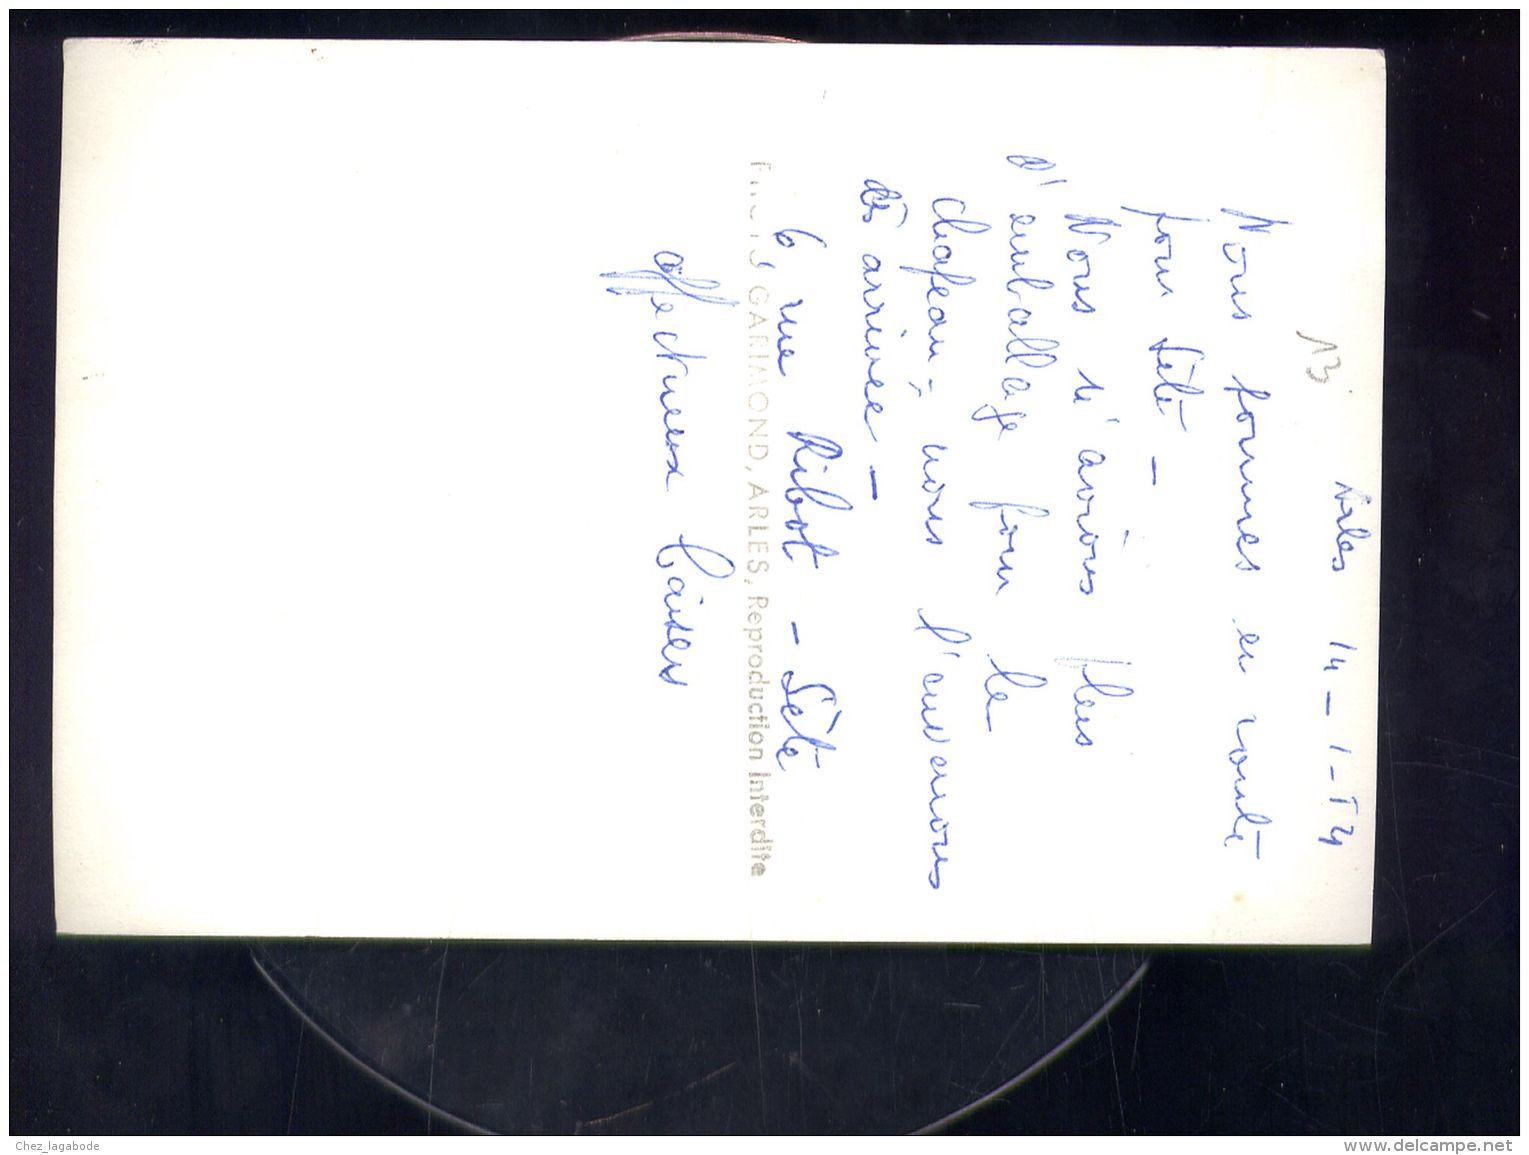 13
Arles 14 - 1 - 74
Nous sommes en route
pour Sète -
Nous n'avions plus
d'emballage pour le
chapeau, nous l'enverrons
dès arrivée -
6, rue Ribot - Sète
GARIMOND, ARLES, Reproduction Interdite
affectueux baisers
Chez_lagabode
www.delcampe.net